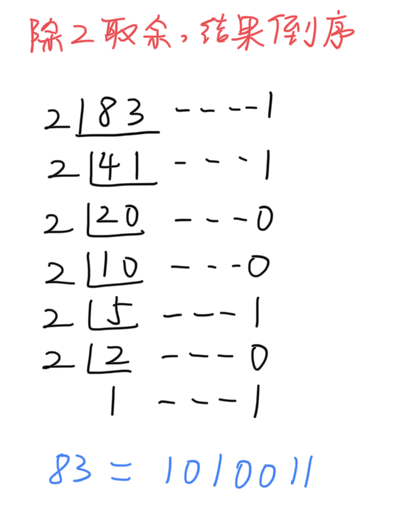 除2取余,结果倒序
2 83 ----1
2 41 ---1
2 20 ---0
2 10 ---0
2 5 ---1
2 2 ---0
1 ---1
83 = 1010011